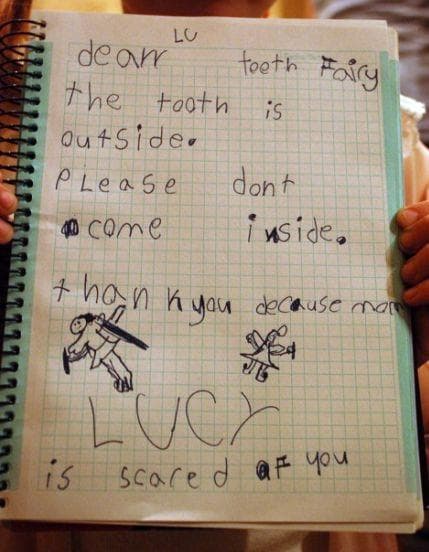 LU
dearr teeth Fairy
the tooth is
outside.
PLease dont
come inside.
thank you decause mom
LUCY
is scared of you